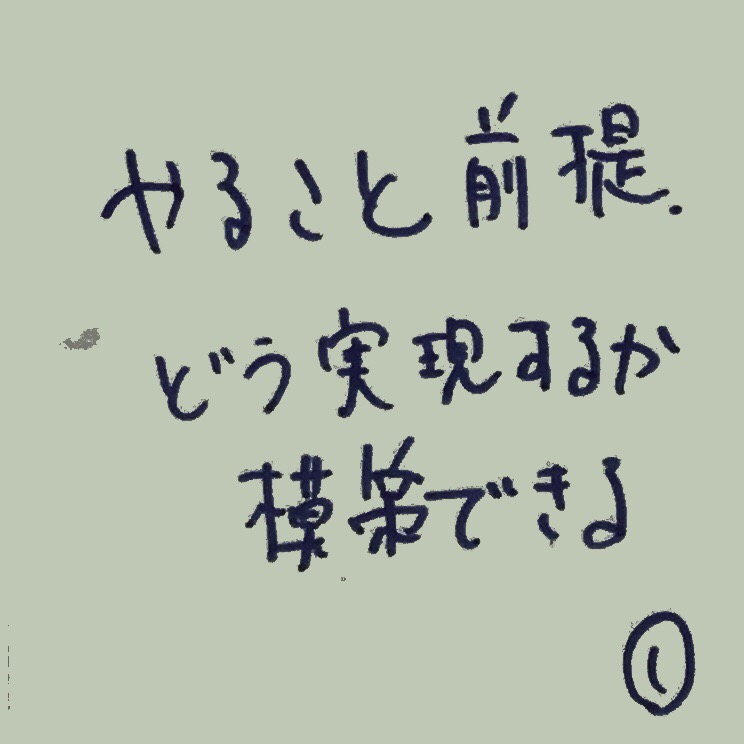 やること前提.
どう実現するか
模索できる
①